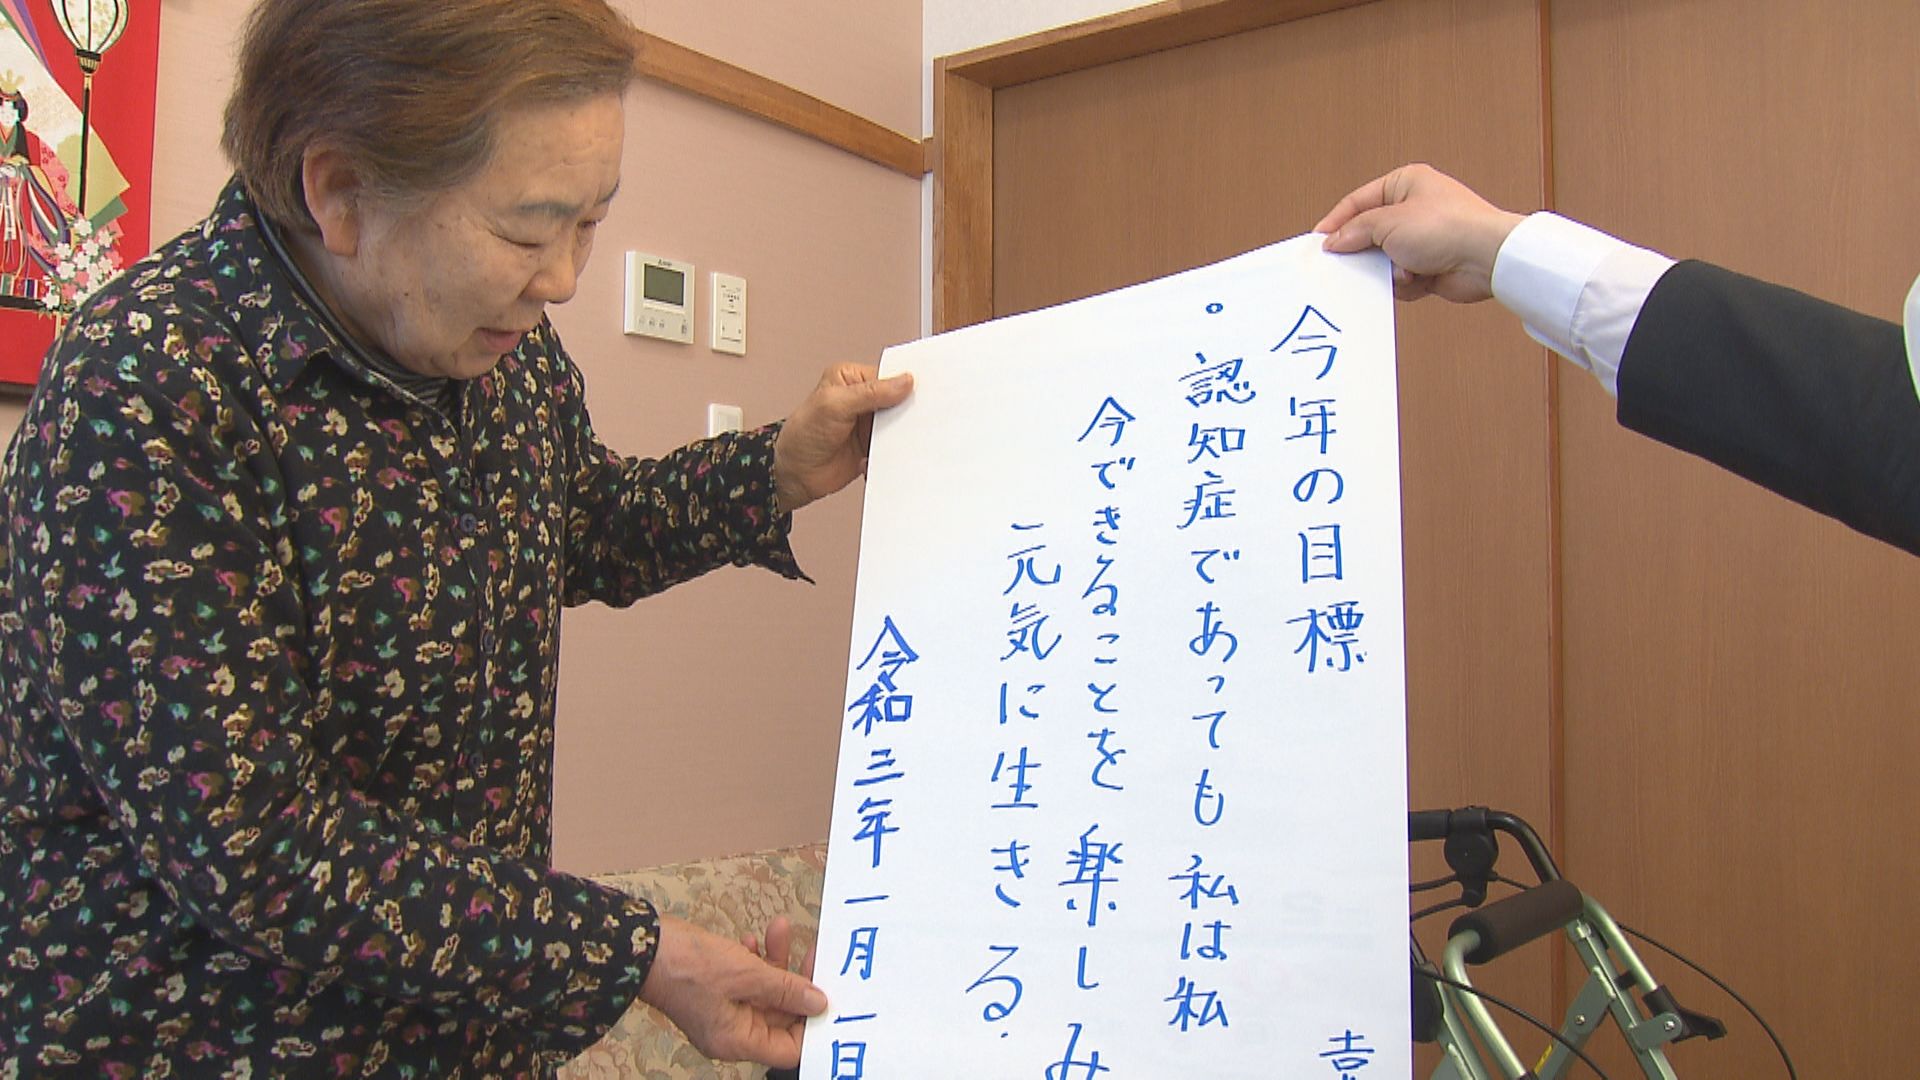 今年の目標
・認知症であっても私は私
今できることを楽しみ
元気に生きる.
令和三年一月一日